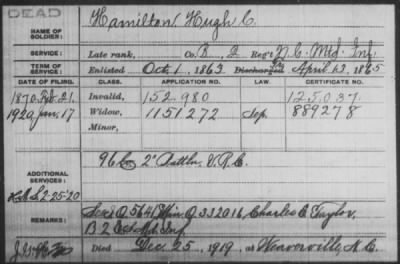 DEAD
NAME OF SOLDIER: Hamilton Hugh C.
SERVICE: Late rank, Co. B, 2 Reg't N.C. Mtd. Inf.
TERM OF SERVICE: Enlisted Oct. 1, 1863 Discharged April 12, 1865
DATE OF FILING. CLASS. APPLICATION NO. LAW. CERTIFICATE NO.
1870 Feb. 21. Invalid, 152.980 125.037.
1920 Jan. 17 Widow, 1151272 Sep. 889278
Minor,
ADDITIONAL SERVICES: 96 Co. 2" Battln. V.R.C.
2-25-20
REMARKS: 332016 Charles C. Taylor,
B 2 Inf.
Died Dec. 25, 1919, at Weaverville, N.C.